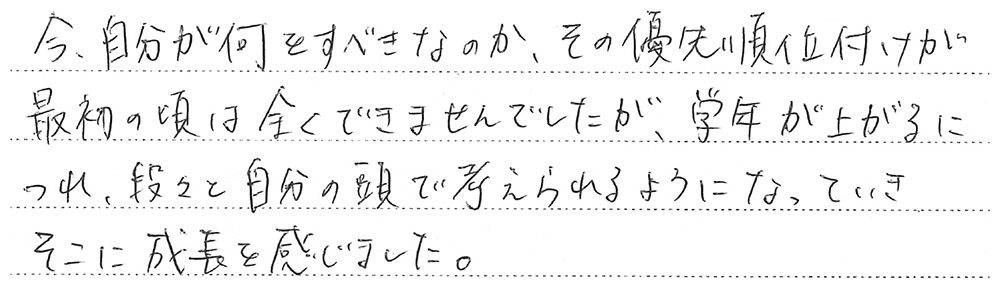 今、自分が何をすべきなのか、その優先順位付けが
最初の頃は全くできませんでしたが、学年が上がるに
つれ、段々と自分の頭で考えられるようになっていき
そこに成長を感じました。